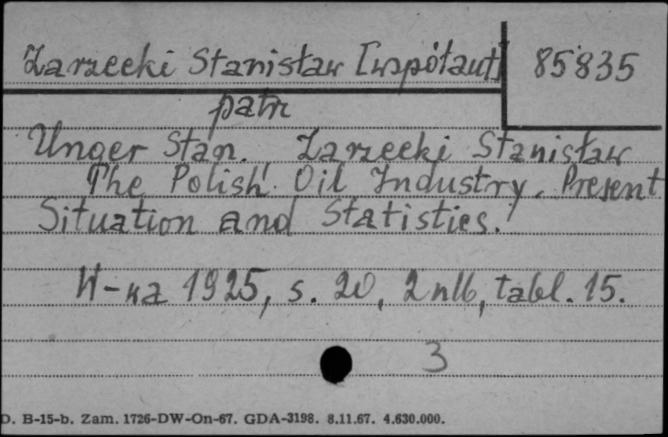 Zarzecki Stanisław [współaut] 85835
patrz
Unger Stan. Zarzecki Stanisław
The Polish Oil Industry. Present
Situation and Statistics.
W-wa 1925, s. 20, 2 nlb, tabl. 15.
3
D. B-15-b. Zam. 1726-DW-On-67. GDA-3198. 8.11.67. 4.630.000.